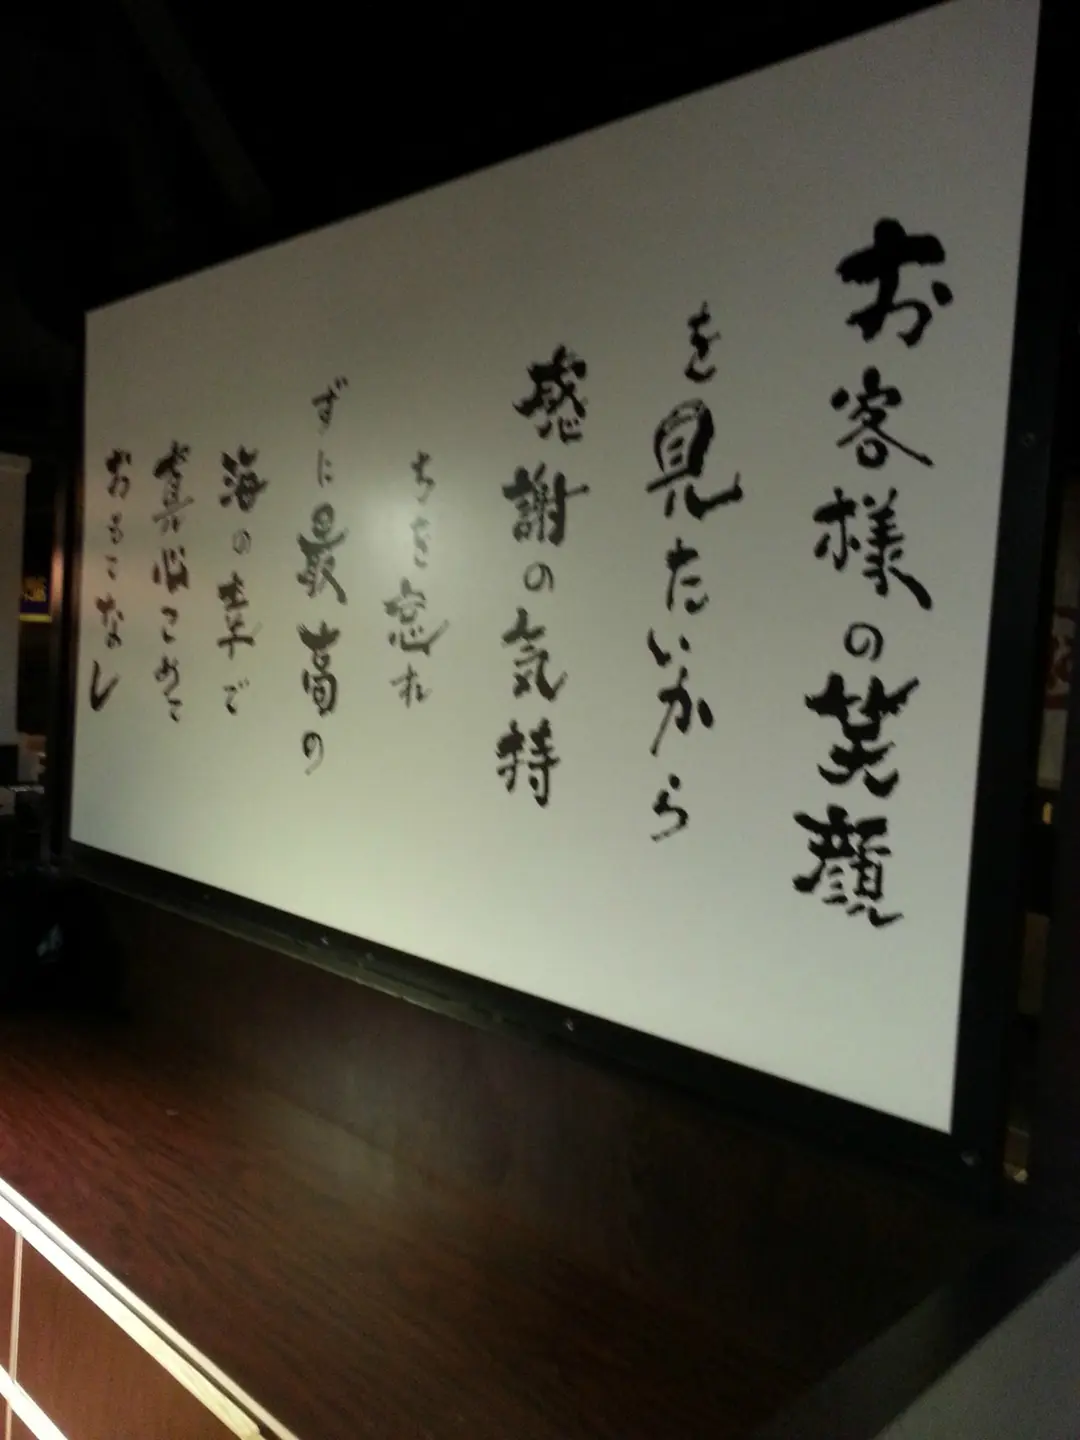 お客様の笑顔
を見たいから
感謝の気持
ちを忘れ
ずに最高の
海の幸で
真心こめて
おもてなし